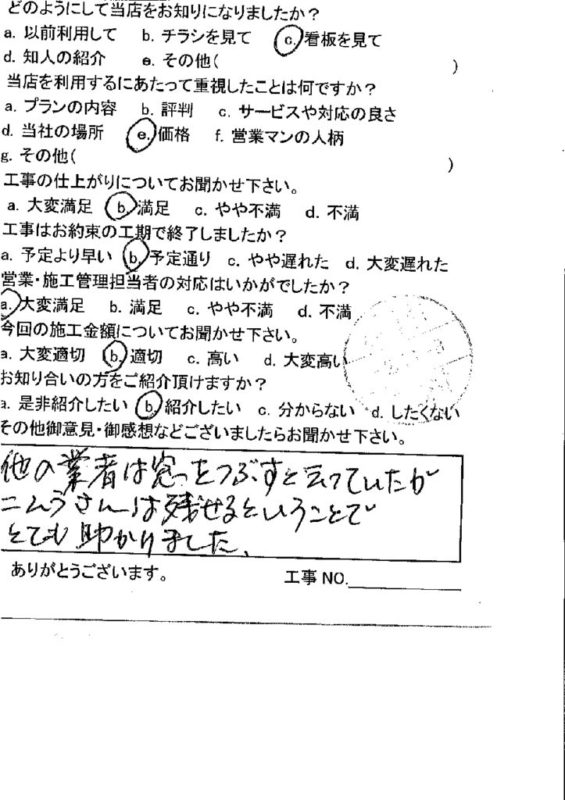 どのようにして当店をお知りになりましたか?
a. 以前利用して b. チラシを見て c. 看板を見て
d. 知人の紹介 e. その他( )
当店を利用するにあたって重視したことは何ですか?
a. プランの内容 b. 評判 c. サービスや対応の良さ
d. 当社の場所 e. 価格 f. 営業マンの人柄
g. その他( )
工事の仕上がりについてお聞かせ下さい。
a. 大変満足 b. 満足 c. やや不満 d. 不満
工事はお約束の工期で終了しましたか?
a. 予定より早い b. 予定通り c. やや遅れた d. 大変遅れた
営業・施工管理担当者の対応はいかがでしたか?
a. 大変満足 b. 満足 c. やや不満 d. 不満
今回の施工金額についてお聞かせ下さい。
a. 大変適切 b. 適切 c. 高い d. 大変高い
お知り合いの方をご紹介頂けますか?
a. 是非紹介したい b. 紹介したい c. 分からない d. したくない
その他御意見・御感想などございましたらお聞かせ下さい。
他の業者は窓をつぶすと云っていたが
こんどうさんは残せるということで
とても助かりました。
ありがとうございます。 工事 NO.